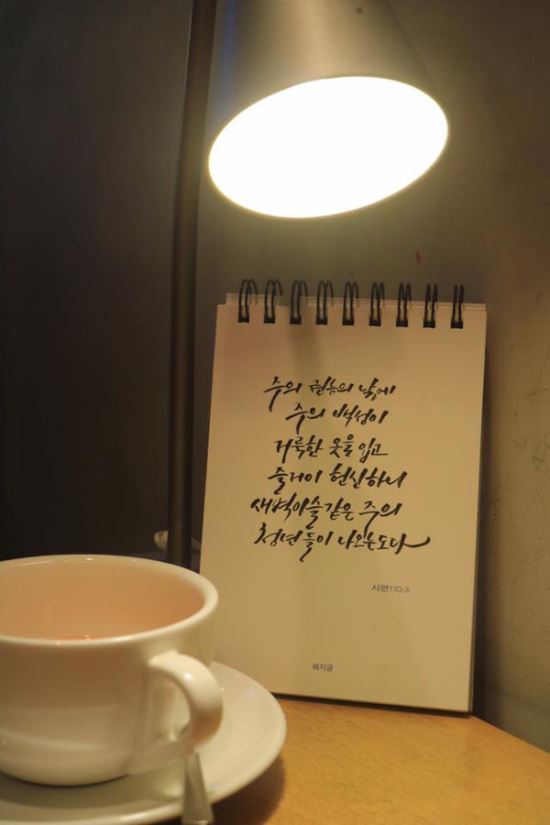 주의 권능의 날에
주의 백성이
거룩한 옷을 입고
즐거이 헌신하니
새벽이슬 같은 주의
청년들이 나오는도다
시편110:3
혜지글